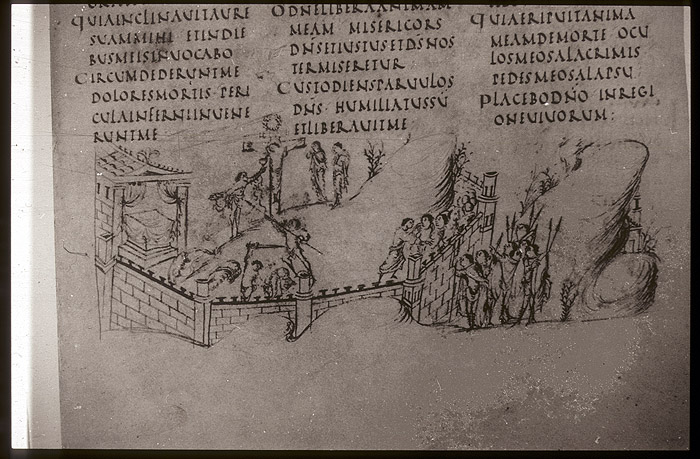 QUIAINCLINAUITAURE
SUAMMIHI ETINDIE
BUSMEISINUOCABO
CIRCUMDEDERUNTME
DOLORESMORTIS PERI
CULAINFERNIINUENE
RUNTME
ODNELIBERAANIMAM
MEAM MISERICORS
DNSETIUSTUSETDSNOS
TERMISERETUR
CUSTODIENSPARUULOS
DNS HUMILIATUSSU
ETLIBERAUITME
QUIAERIPUITANIMA
MEAMDEMORTE OCU
LOSMEOSALACRIMIS
PEDESMEOSALAPSU
PLACEBODNO INREGI
ONEUIUORUM: